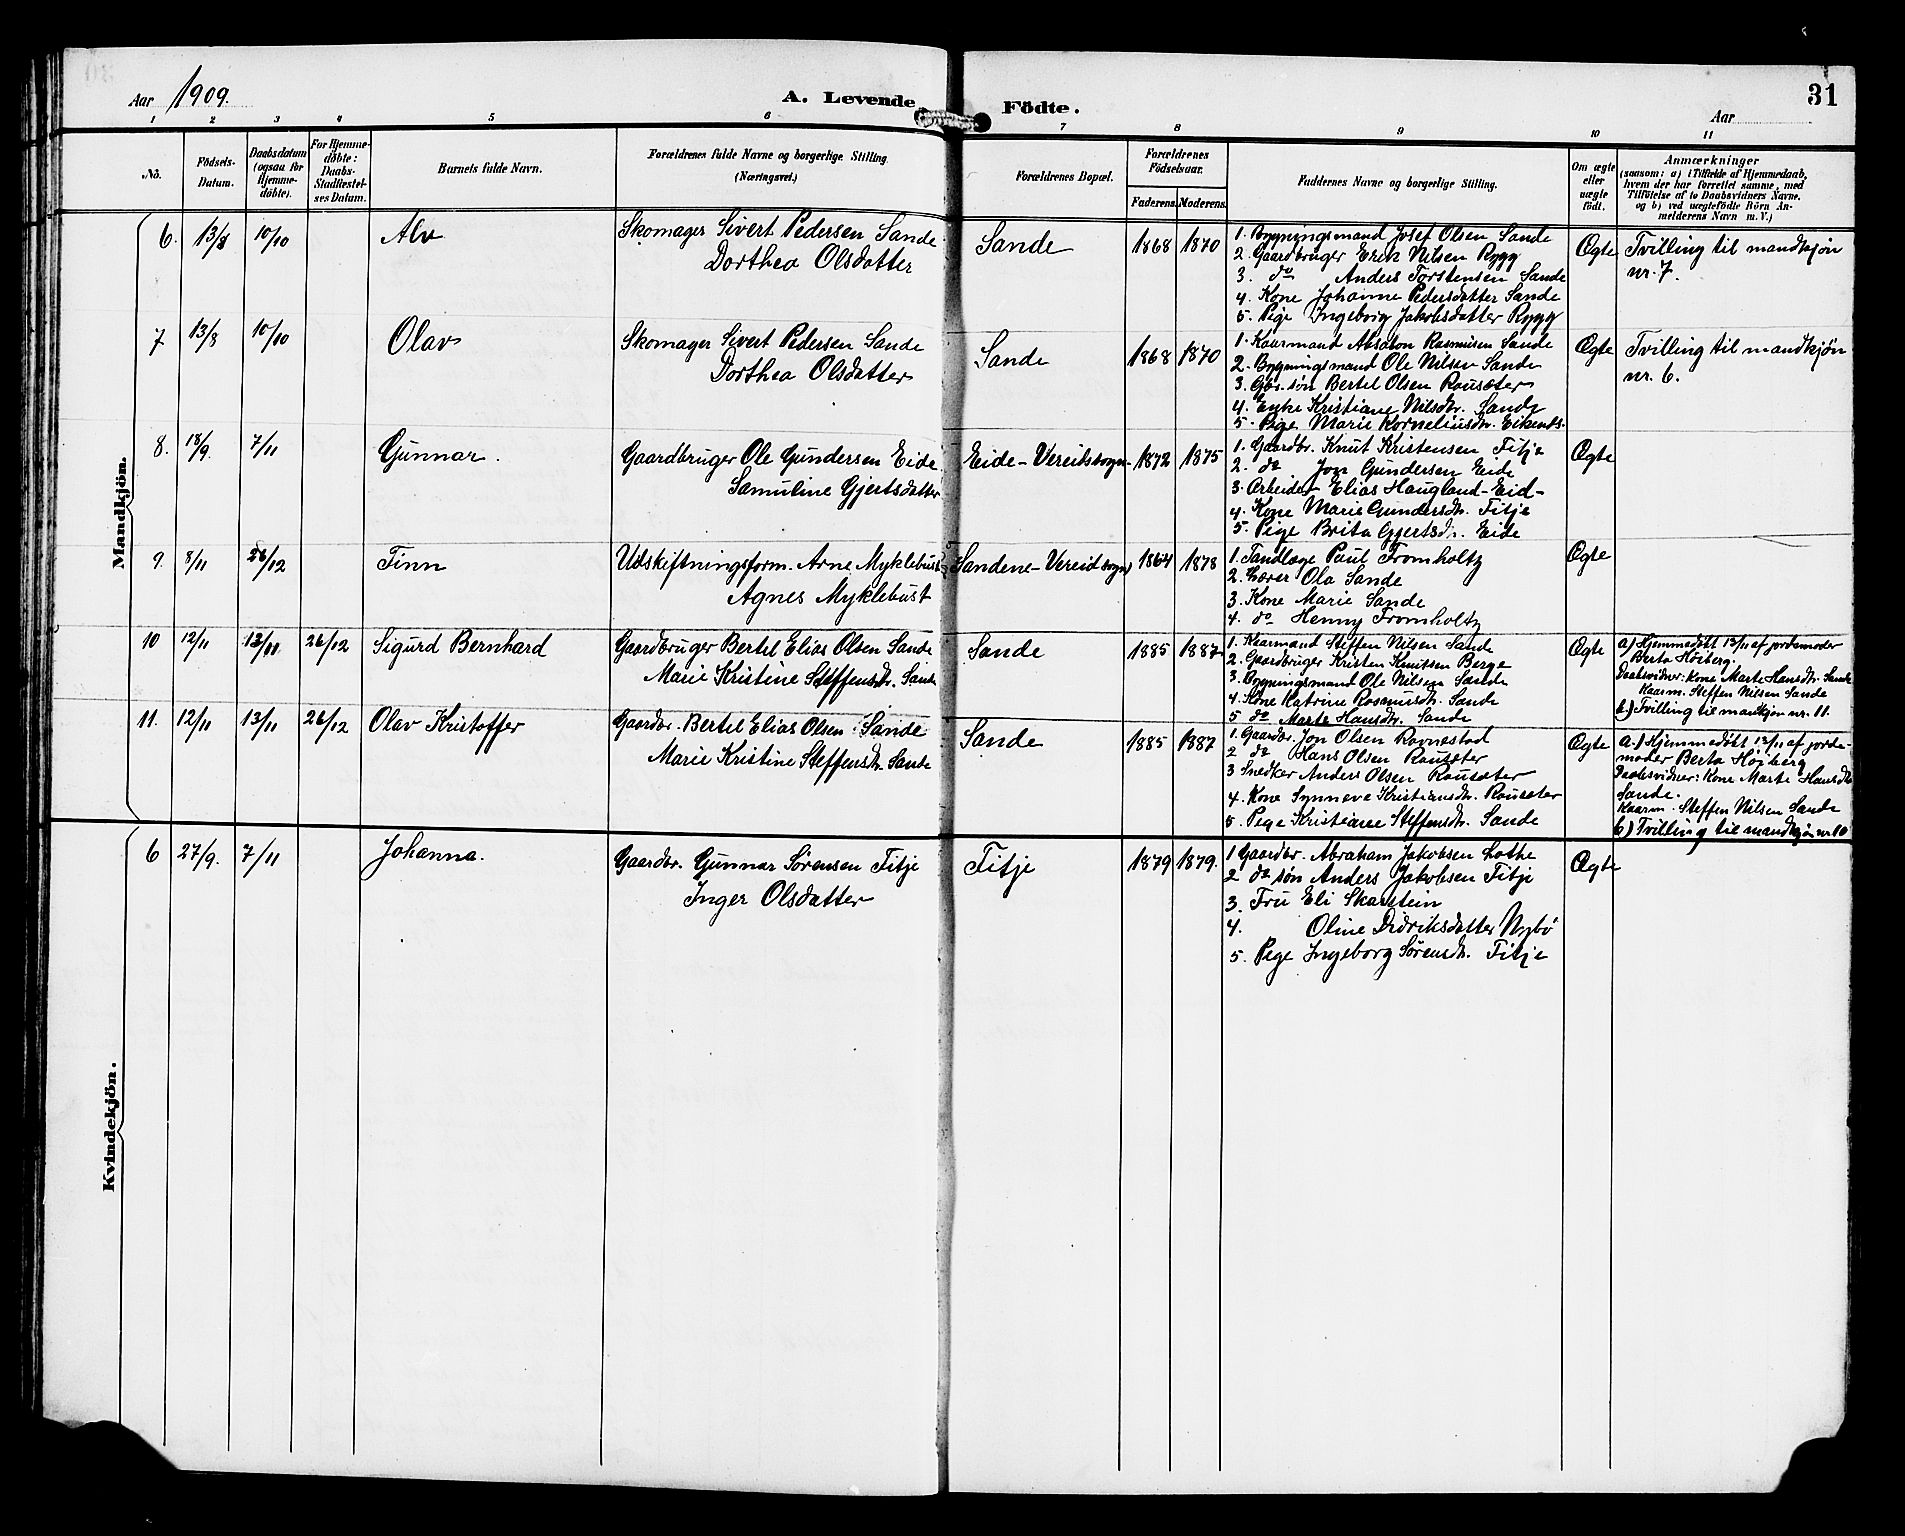 Aar 1909. A. Levende Födte. Aar 31
1 2 3 4 5 6 7 8 9 10 11
No.
Födsels-
Datum.
Daabsdatum
(ogsaa for
Hjemme-
döbte).
For Hjemme-
döbte:
Daabs-
Stadfæstel-
ses Datum.
Barnets fulde Navn.
Forældrenes fulde Navne og borgerlige Stilling.
(Næringsvei.)
Forældrenes Bopæl.
Forældrenes
Födselsaar.
Faderens. Moderens.
Faddernes Navne og borgerlige Stilling.
Om ægte
eller
uægte
födt.
Anmærkninger
(saasom: a) i Tilfælde af Hjemmedaab,
hvem der har forrettet samme, med
Tilföielse af to Daabsvidners Navne.
og b) ved uægtefödte Börn An-
melderens Navn m. V.)
Mandkjön.
6. 13/8 10/10 Alv
Skomager Sivert Pedersen Sande
Dorthea Olsdatter
Sande 1868 1870
1. Bygningsmand Josef Olsen Sande
2. Gaardbruger Erik Nilsen Rygg
3. do Anders Torstensen Sande
4. Kone Johanne Pedersdatter Sande
5. Pige Ingeborg Jakobsdatter Rygg
Ægte
Tvilling til mandkjøn
nr. 7.
7 13/8 10/10 Olav
Skomager Sivert Pedersen Sande
Dorthea Olsdatter
Sande 1868 1870
1. Kaarmand Absalon Rasmusen Sande
2. Bygningsmand Ole Nilsen Sande
3. Gbr. søn Bertel Olsen Rousæter
4. Enke Kristiane Nilsdtr. Sande
5. Pige Marie Korneliusdtr. Eikenes.
Ægte
Tvilling til mandkjøn
nr. 6.
8. 18/9. 7/11 Gunnar.
Gaardbruger Ole Gundersen Eide
Samuline Gjertsdatter
Eide - Vereidsogn 1872 1875
1. Gaardbr. Knut Kristensen Fitje
2. do Jon Gundersen Eide
3. Arbeider Elias Haugland - Eid -
4. Kone Marie Gundersdtr. Fitje
5. Pige Brita Gjertsd. Eide
Ægte
9. 8/11 26/12 Finn
Udskiftningsform. Arne Myklebust
Agnes Myklebust
Sandene - Vereid sogn 1864 1878
1. Tandlæge Paul Fromholtz
2. Lærer Ola Sande
3. Kone Marie Sande
4. do Henny Fromholtz
Ægte
10 12/11 13/11 26/12 Sigurd Bernhard
Gaardbruger Bertel Elias Olsen Sande
Marie Kristine Steffensdtr. Sande
Sande 1885 1887
1. Kaarmand Steffen Nilsen Sande
2. Gaardbruger Kristen Knutsen Berge
3. Bygningsmand Ole Nilsen Sande
4. Kone Katrine Rasmusdtr. Sande
5 do Marte Hansdtr. Sande
Ægte
a) Hjemmedøbt 13/11 af jordemoder
Berta Höiberg.
Daabsvidner: Kone Marte Hansdtr. Sande
Kaarm. Steffen Nilsen Sande
b.) Tvilling til mandkjøn nr. 11.
11. 12/11 13/11 26/12 Olav Kristoffer
Gaardbr. Bertel Elias Olsen Sande
Marie Kristine Steffensdtr. Sande
Sande 1885 1887
1. Gaardbr. Jon Olsen Ravnestad
2 do Hans Olsen Rousæter
3 Snedker Anders Olsen Rousæter
4. Kone Synneve Kristiansdtr. Rousæter
5. Pige Kristiane Steffensdtr. Sande
Ægte
a.) Hjemmedöbt 13/11 af jorde-
moder Berta Höiberg
Daabsvidner: Kone Marte Hansdtr
Sande.
Kaarm. Steffen Nilsen Sande
b) Tvilling til mandkjøn nr. 10
Kvindekjön.
6 27/9. 7/11 Johanna.
Gaardbr. Gunnar Sørensen Fitje
Inger Olsdatter
Fitje 1879 1879.
1 Gaardbr. Abraham Jakobsen Lothe
2 do søn Anders Jakobsen Fitje
3. Fru Eli Skarstein
4. Oline Didriksdatter Nybö
5. Pige Ingeborg Sørensdtr. Fitje
Ægte